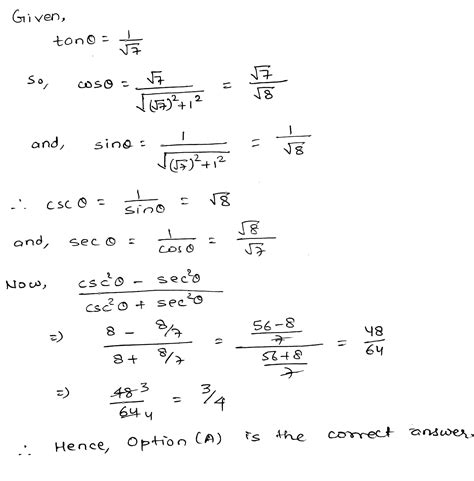 Given,
tanθ = 1/√7
So, cosθ = √7/√((√7)²+1²) = √7/√8
and, sinθ = 1/√((√7)²+1²) = 1/√8
∴ cscθ = 1/sinθ = √8
and, secθ = 1/cosθ = √8/√7
Now, (csc²θ - sec²θ)/(csc²θ + sec²θ)
⇒ (8 - 8/7)/(8 + 8/7) = ((56-8)/7)/((56+8)/7) = 48/64
⇒ 48 3/64 4 = 3/4
∴ Hence, Option (A) is the correct answer.